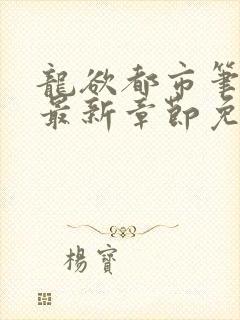 龍欲都市筆
最新章節免
楊寶